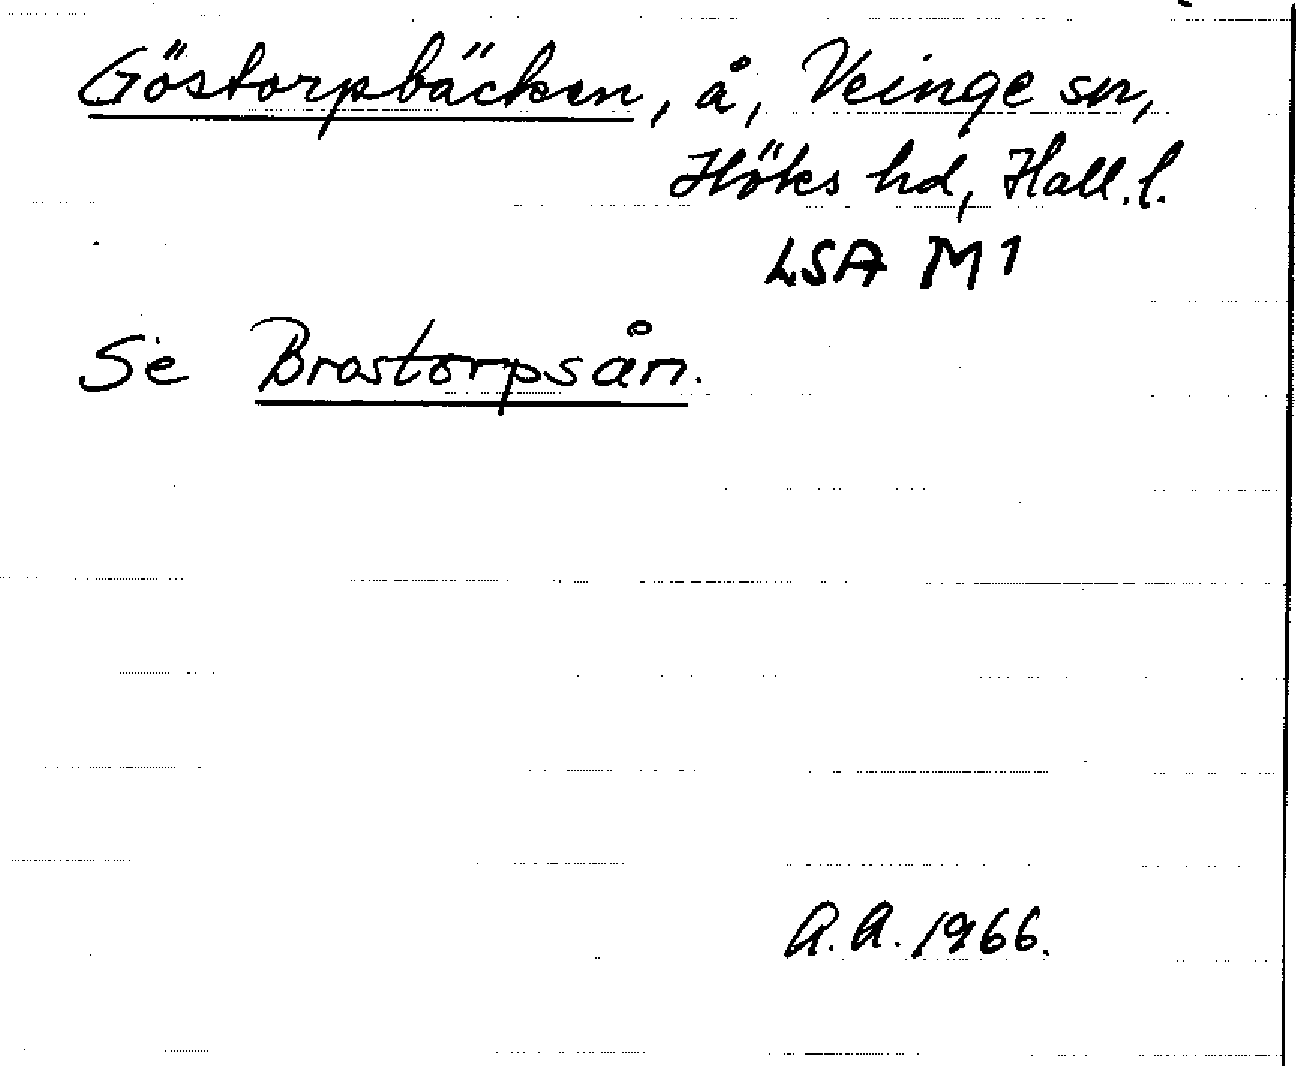 Göstorpbäcken, å, Veinge sn,
Höks hd, Hall. l.
LSA M1
Se Brostorpsån.
A.A. 1966.